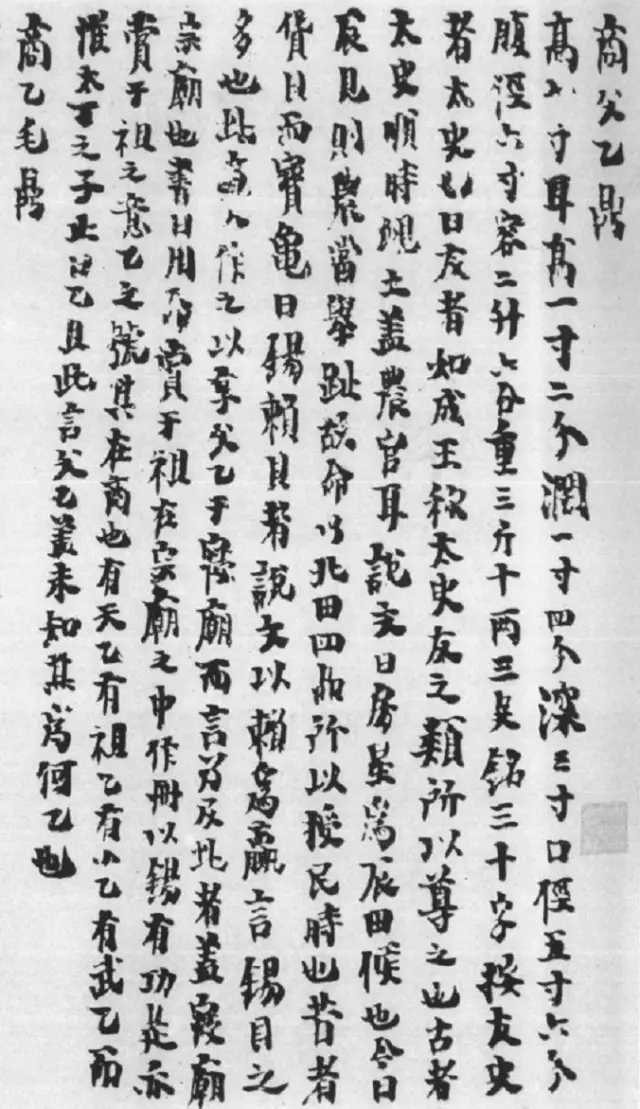 商父乙鼎
高六寸耳高一寸二分濶一寸四分深三寸口徑五寸六分
腹徑六寸容二升六合重三斤十两三足銘三十字按友史
者太史也曰友者如成王称太史友之類所以尊之也古者
太史順時覛土盖農官耳說文曰房星為辰田候也今曰
辰見則農當舉趾故命以北田四品所以授民時也昔者
貨貝而寶龜曰錫賴貝者說文以賴為贏言錫貝之
多也此鼎作之以享父乙于寢廟而言及此者盖寢廟
宗廟也書曰用命賞于祖在宗廟之中作冊以錫有功是亦
賞于祖之意乙之號其在商也有天乙有祖乙有小乙有武乙而
惟太丁之子止曰乙且此言父乙盖未知其為何乙也
商乙毛鼎